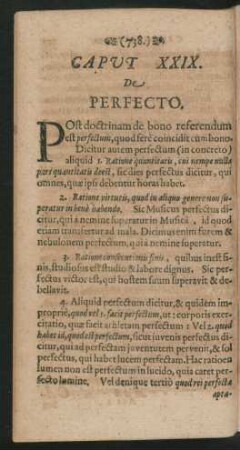 (738.)
CAPUT XXIX.
De
PERFECTO,
POst doctrinam de bono referendum
est perfectum, quod ferè coincidit cum bono.
Dicitur autem perfectum (in concreto)
aliquid 1. Ratione quantitatis, cui nempe nulla
pars quantitatis deest, sic dies perfectus dicitur, qui
omnes, quas ipsi debentur horas habet.
2. Ratione virtutis, quod in aliquo genere non su-
peratur in bene habendo, Sic Musicus perfectus di-
citur, qui à nemine superatur in Musicâ, id quod
etiam transfertur ad mala. Dicimus enim furem &
nebulonem perfectum, qui à nemine superatur.
3. Ratione consecutionis finis, quibus inest fi-
nis, studiosus est studio & labore dignus. Sic per-
fectus victor est, qui hostem suum superavit & de-
bellavit.
4. Aliquid perfectum dicitur, & quidem im-
propriè, quod vel 1. facit perfectum, ut: corporis exer-
citatio, quæ facit athletam perfectum: Vel 2. quod
habet id, quod est perfectum, sicut juvenis perfectus di-
citur, qui ad perfectam juventutem pervenit, & sol
perfectus, qui habet lutem perfectam. Hac ratione
lumen non est perfectum in lucido, quia caret per-
fecto lumine. Vel denique tertiò quod rei perfectæ
apta-